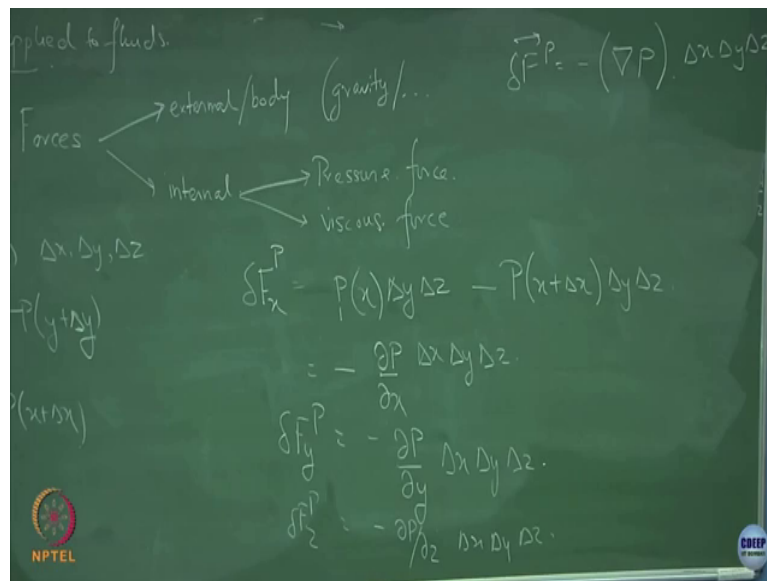 applied to fluids.
Forces
→ external/body (gravity/...
→ internal
→ Pressure force.
→ viscous force
δF⃗^P = - (∇P). Δx Δy Δz
Δx, Δy, Δz
P(y+Δy)
P(x+Δx)
δF_x^P = P(x) Δy Δz - P(x+Δx) Δy Δz.
= - ∂P/∂x Δx Δy Δz.
δF_y^P = - ∂P/∂y Δx Δy Δz.
δF_z^P = - ∂P/∂z Δx Δy Δz.
NPTEL
CDEEP
IIT BOMBAY